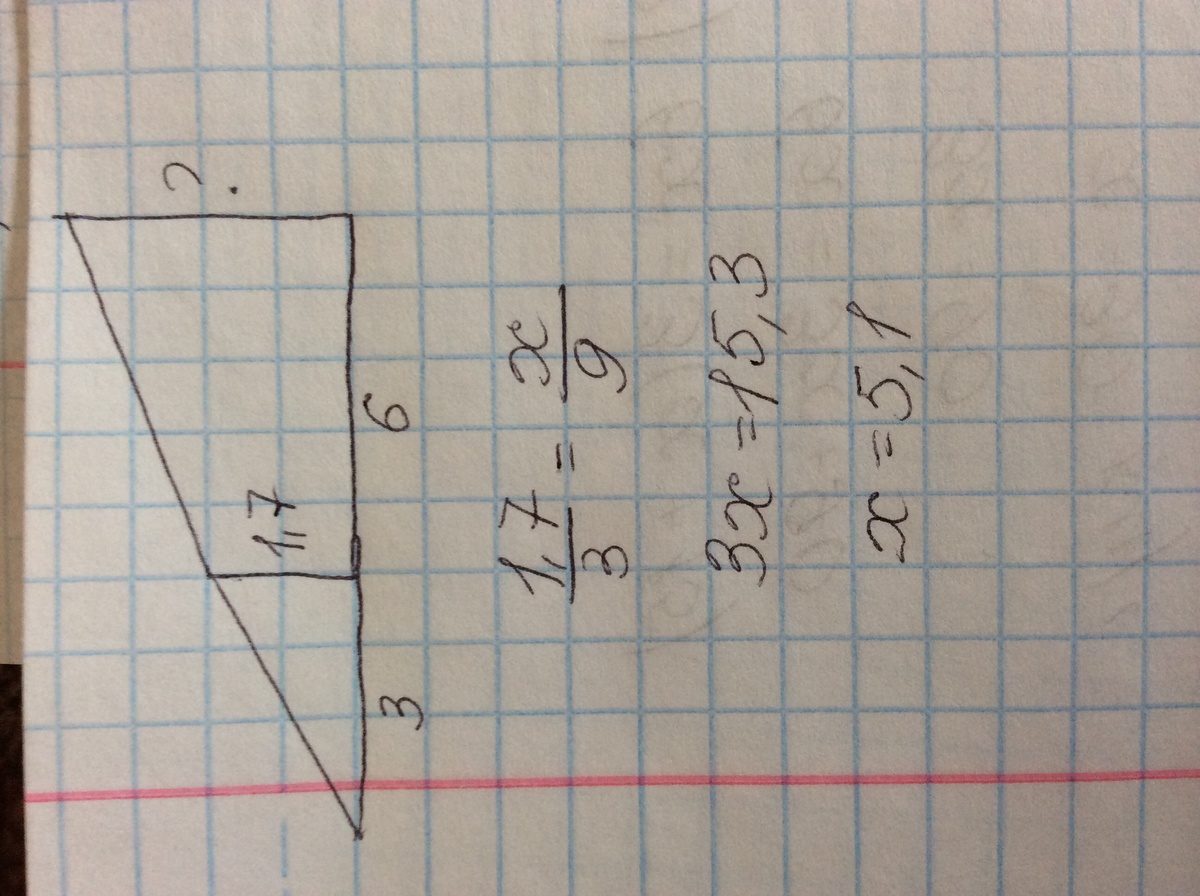 ?
1,7
3 6
1,7/3 = x/9
3x = 15,3
x = 5,1